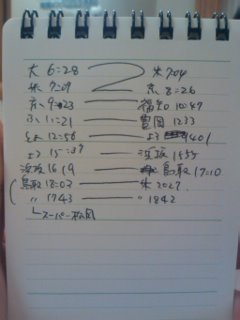 大 6:28 ― 米 7:04
米 7:09 ― 京 8:26
京 9:23 ― 福知 10:47
ふく 11:21 ― 豊岡 1233
とよ 12:56 ― よう 1401
よう 15:37 ― 浜坂 1555
浜坂 1619 ― 鳥取 17:10
鳥取 18:03 ― 米 2027
〃 1743 ― 〃 1842
└スーパー松風